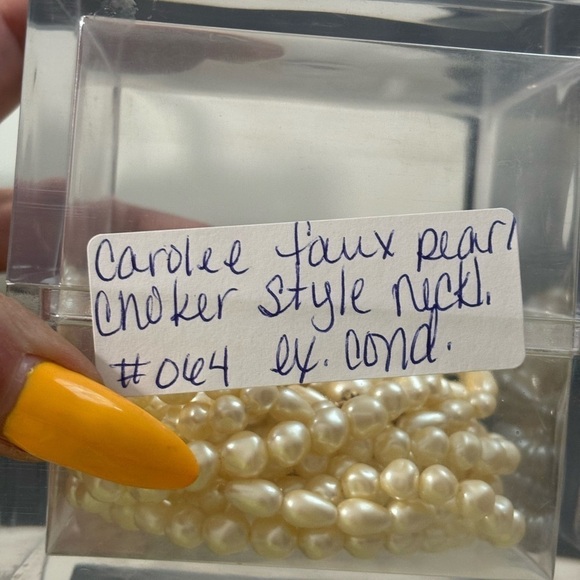 Carolee faux pearl
Choker style neckl.
#064 ex. cond.